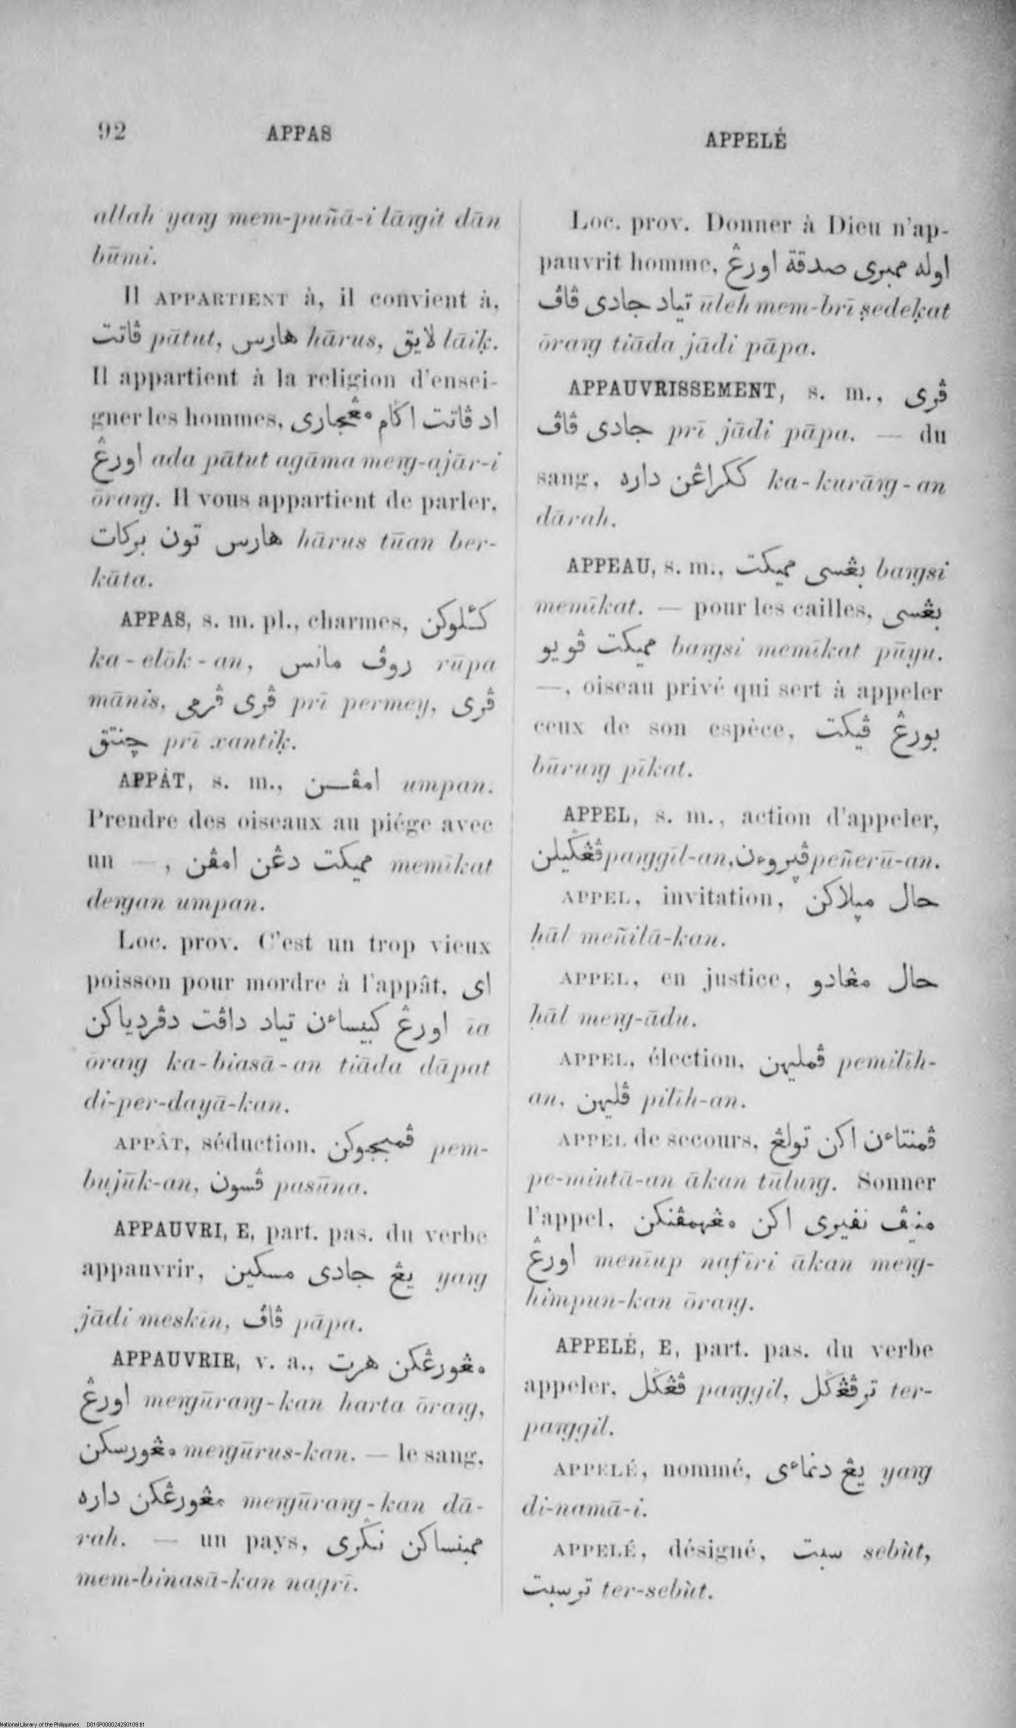 92
APPAS
APPELÉ
allah yaŋ mem-puñā-i lāŋit dān
būmi.
Il APPARTIENT à, il convient à,
ڤاتت pātut, هارس hārus, لايق lāiḳ.
Il appartient à la religion d'ensei-
gner les hommes, اد ڤاتت اڬام مڠجاري
اورڠ ada pātut agāma meŋ-ajār-i
ōraŋ. Il vous appartient de parler,
هارس تون بركات hārus tūan ber-
kāta.
APPAS, s. m. pl., charmes, كئلوكن
ka-elōk-an, روڤ مانس rūpa
mānis, ڤري ڤرمي prī permey, ڤري
چنتق prī xantiḳ.
APPÂT, s. m., امڤن umpan.
Prendre des oiseaux au piége avec
un —, مميكت دڠن امڤن memīkat
deŋan umpan.
Loc. prov. C'est un trop vieux
poisson pour mordre à l'appât, اي
اورڠ كبيساءن تياد داڤت دڤردياكن īa
ōraŋ ka-biasā-an tiāda dāpat
di-per-dayā-kan.
APPÂT, séduction, ڤمبجوكن pem-
bujūk-an, ڤسون pasūna.
APPAUVRI, E, part. pas. du verbe
appauvrir, يڠ جادي مسكين yaŋ
jādi meskīn, ڤاڤ pāpa.
APPAUVRIR, v. a., مڠورڠكن هرت
اورڠ meŋūraŋ-kan harta ōraŋ,
مڠورسكن meŋūrus-kan. — le sang,
مڠورڠكن داره meŋūraŋ-kan dā-
rah. — un pays, ممبنساكن نڬري
mem-binasā-kan nagrī.
Loc. prov. Donner à Dieu n'ap-
pauvrit homme, اوله ممبري صدقة اورڠ
تياد جادي ڤاڤ ūleh mem-brī ṣedeḳat
ōraŋ tiāda jādi pāpa.
APPAUVRISSEMENT, s. m., ڤري
جادي ڤاڤ prī jādi pāpa. — du
sang, ككراڠن داره ka-kurāŋ-an
dārah.
APPEAU, s. m., بڠسي مميكت baŋsi
memīkat. — pour les cailles, بڠسي
مميكت ڤويو baŋsi memīkat pūyu.
—, oiseau privé qui sert à appeler
ceux de son espèce, بورڠ ڤيكت
būruŋ pīkat.
APPEL, s. m., action d'appeler,
ڤڠڬيلن paŋgīl-an, ڤڽروءن peñerū-an.
APPEL, invitation, حال مڽلاكن
ḥāl meñilā-kan.
APPEL, en justice, حال مڠادو
ḥāl meŋ-ādu.
APPEL, élection, ڤمليهن pemilīh-
an, ڤليهن pilīh-an.
APPEL de secours, ڤمنتاءن اكن تولڠ
pe-mintā-an ākan tūluŋ. Sonner
l'appel, منيڤ نفيري اكن مڠهمڤنكن
اورڠ menīup nafīri ākan meŋ-
himpun-kan ōraŋ.
APPELÉ, E, part. pas. du verbe
appeler, ڤڠڬل paŋgil, ترڤڠڬل ter-
paŋgil.
APPELÉ, nommé, يڠ دنماءي yaŋ
di-namā-i.
APPELÉ, désigné, سبت sebùt,
ترسبت ter-sebùt.
National Library of the Philippines